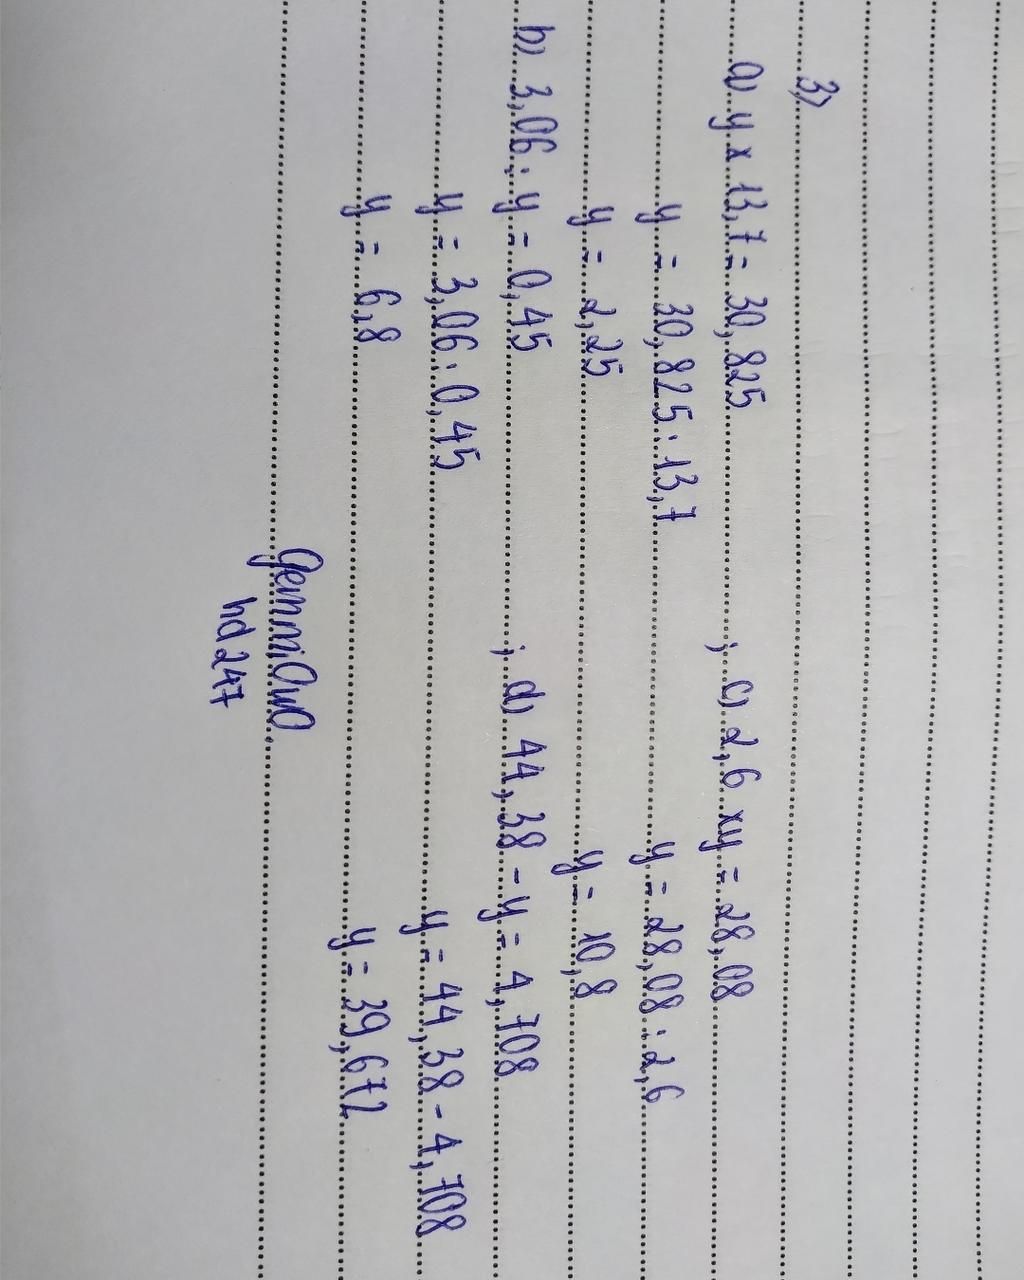 3)
a) y x 13,7 = 30,825
y = 30,825 : 13,7
y = 2,25
b) 3,06 : y = 0,45
y = 3,06 : 0,45
y = 6,8
; c) 2,6 x y = 28,08
y = 28,08 : 2,6
y = 10,8
; d) 44,38 - y = 4,708
y = 44,38 - 4,708
y = 39,672
hd247